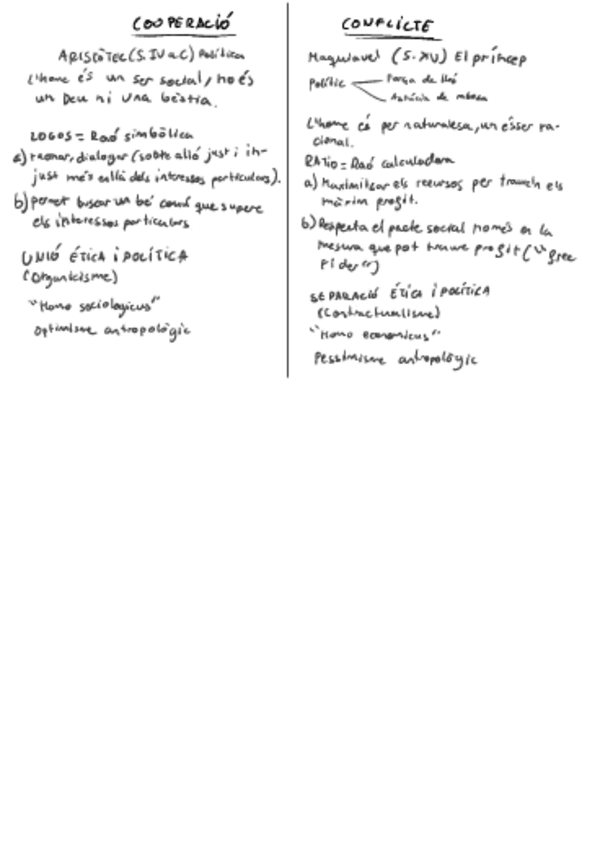 COOPERACIÓ
ARISTÒTEC (S. IV a C) Política
L'home és un ser social, no és
un Deu ni una bèstia.
LOGOS = Raó simbòlica
a) raonar, dialogar (sobre allò just i in-
just més enllà dels interessos particulars).
b) permet buscar un bé comú que supere
els interessos particulars
UNIÓ ÉTICA i POLÍTICA
(Organicisme)
"Homo sociologicus"
Optimisme antropològic
CONFLICTE
Maquiavel (S. XV) El príncep
Polític
Força de lleó
Astúcia de
L'home és per naturalesa, un ésser ra-
cional.
RATIO = Raó calculadora
a) Maximitzar els recursos per traure els
màxim profit.
b) Respecta el pacte social només en la
mesura que pot traure profit ("free
rider")
SEPARACIÓ ÉTICA i POLÍTICA
(Contractualisme)
"Homo economicus"
Pessimisme antropològic